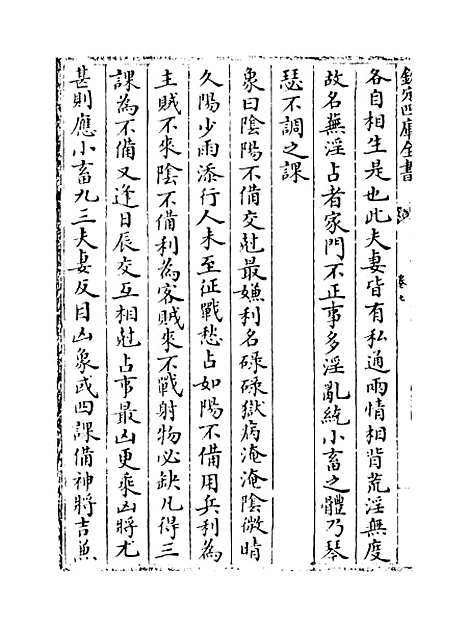 欽定四庫全書
卷七
各自相生是也此夫妻皆有私通兩情相背荒淫無度
故名蕪淫占者家門不正事多淫亂統小畜之體乃琴
瑟不調之課
象曰陰陽不備交尅最嫌利名碌碌獄病淹淹陰微晴
久陽少雨添行人未至征戰愁占如陽不備用兵利為
主賊不來陰不備利為客賊來不戰射物必缺凡得三
課為不備又逢日辰交互相尅占事最凶更乘凶將尤
甚則應小畜九三夫妻反目凶象或四課備神將吉兼